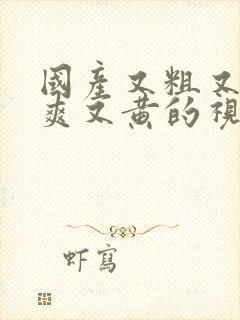 國產又粗又
爽又黃的視
虾寫